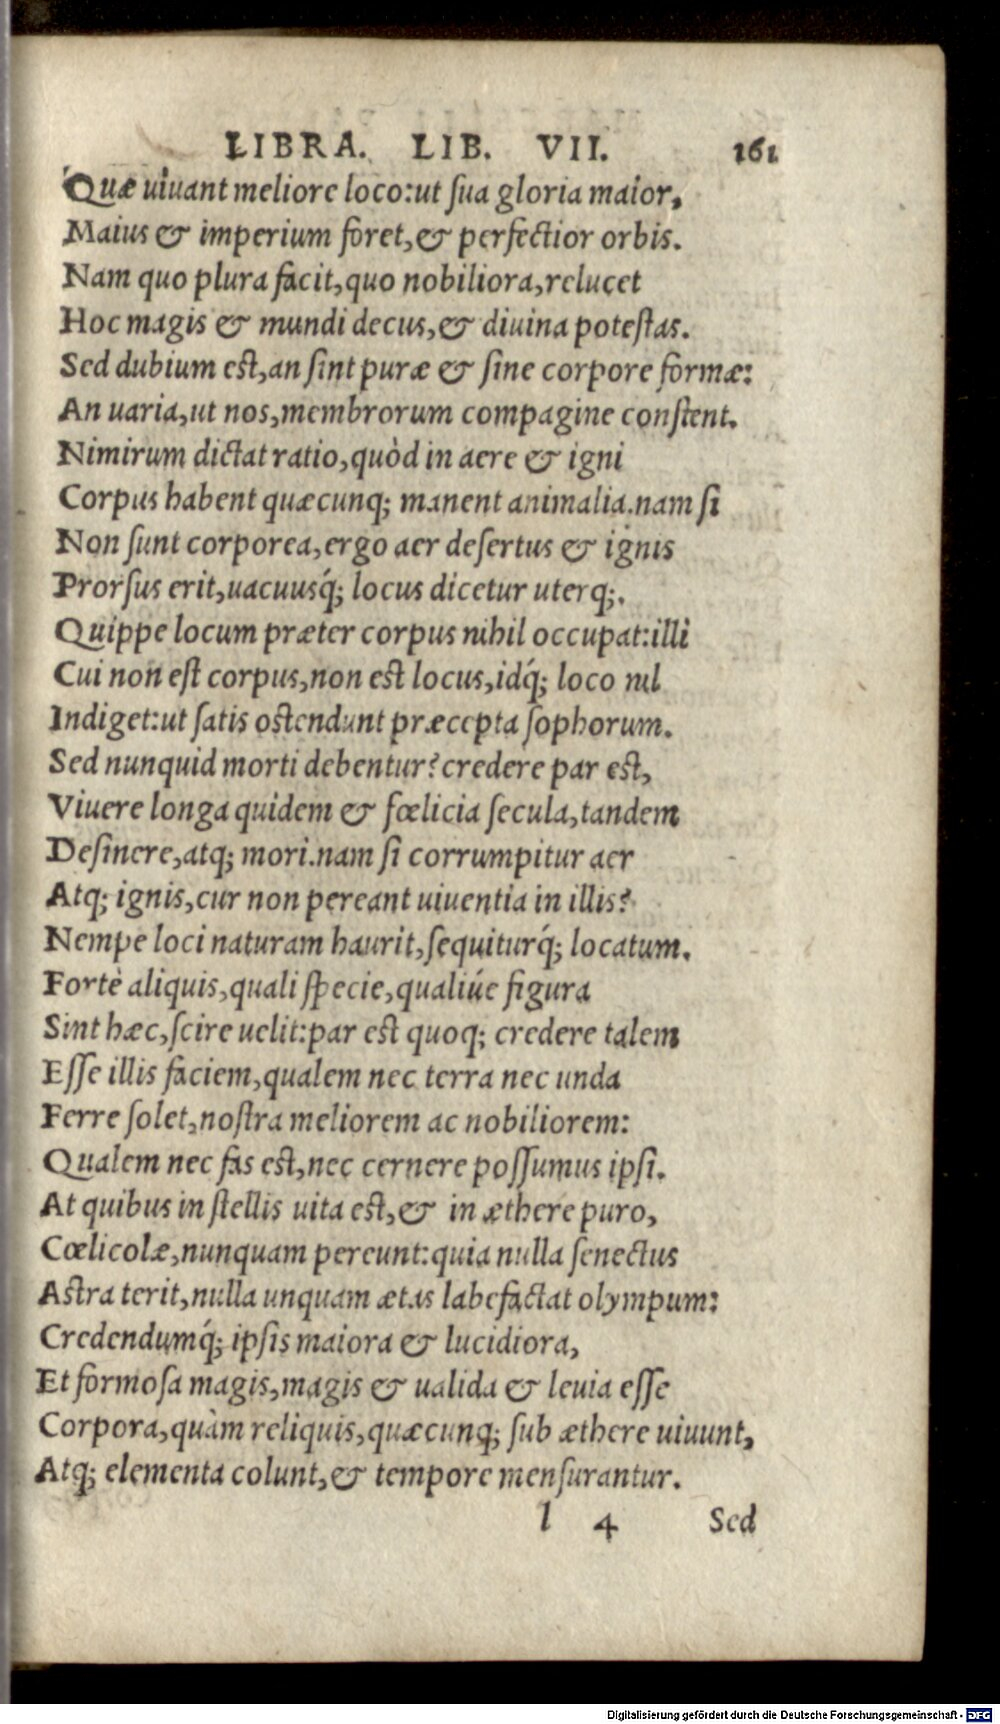 LIBRA. LIB. VII. 161
Quæ uiuant meliore loco:ut ſua gloria maior,
Maius & imperium foret,& perfectior orbis.
Nam quo plura facit,quo nobiliora,relucet
Hoc magis & mundi decus,& diuina poteſtas.
Sed dubium eſt,an ſint puræ & ſine corpore formæ:
An uaria,ut nos,membrorum compagine conſtent.
Nimirum dictat ratio,quòd in aere & igni
Corpus habent quæcunq; manent animalia.nam ſi
Non ſunt corporea,ergo aer deſertus & ignis
Prorſus erit,uacuusq́; locus dicetur uterq;.
Quippe locum præter corpus nihil occupat:illi
Cui non eſt corpus,non eſt locus,idq́; loco nil
Indiget:ut ſatis oſtendunt præcepta ſophorum.
Sed nunquid morti debentur? credere par eſt,
Viuere longa quidem & fœlicia ſecula,tandem
Deſinere,atq; mori.nam ſi corrumpitur aer
Atq; ignis,cur non pereant uiuentia in illis?
Nempe loci naturam haurit,ſequiturq́; locatum.
Fortè aliquis,quali ſpecie,qualiúe figura
Sint hæc,ſcire uelit:par eſt quoq; credere talem
Eſſe illis faciem,qualem nec terra nec unda
Ferre ſolet,noſtra meliorem ac nobiliorem:
Qualem nec fas eſt,nec cernere poſſumus ipſi.
At quibus in ſtellis uita eſt,& in æthere puro,
Cœlicolæ,nunquam pereunt:quia nulla ſenectus
Aſtra terit,nulla unquam ætas labefactat olympum:
Credendumq́; ipſis maiora & lucidiora,
Et formoſa magis,magis & ualida & leuia eſſe
Corpora,quàm reliquis,quæcunq; ſub æthere uiuunt,
Atq; elementa colunt,& tempore menſurantur.
l 4 Sed
Digitalisierung gefördert durch die Deutsche Forschungsgemeinschaft - DFG